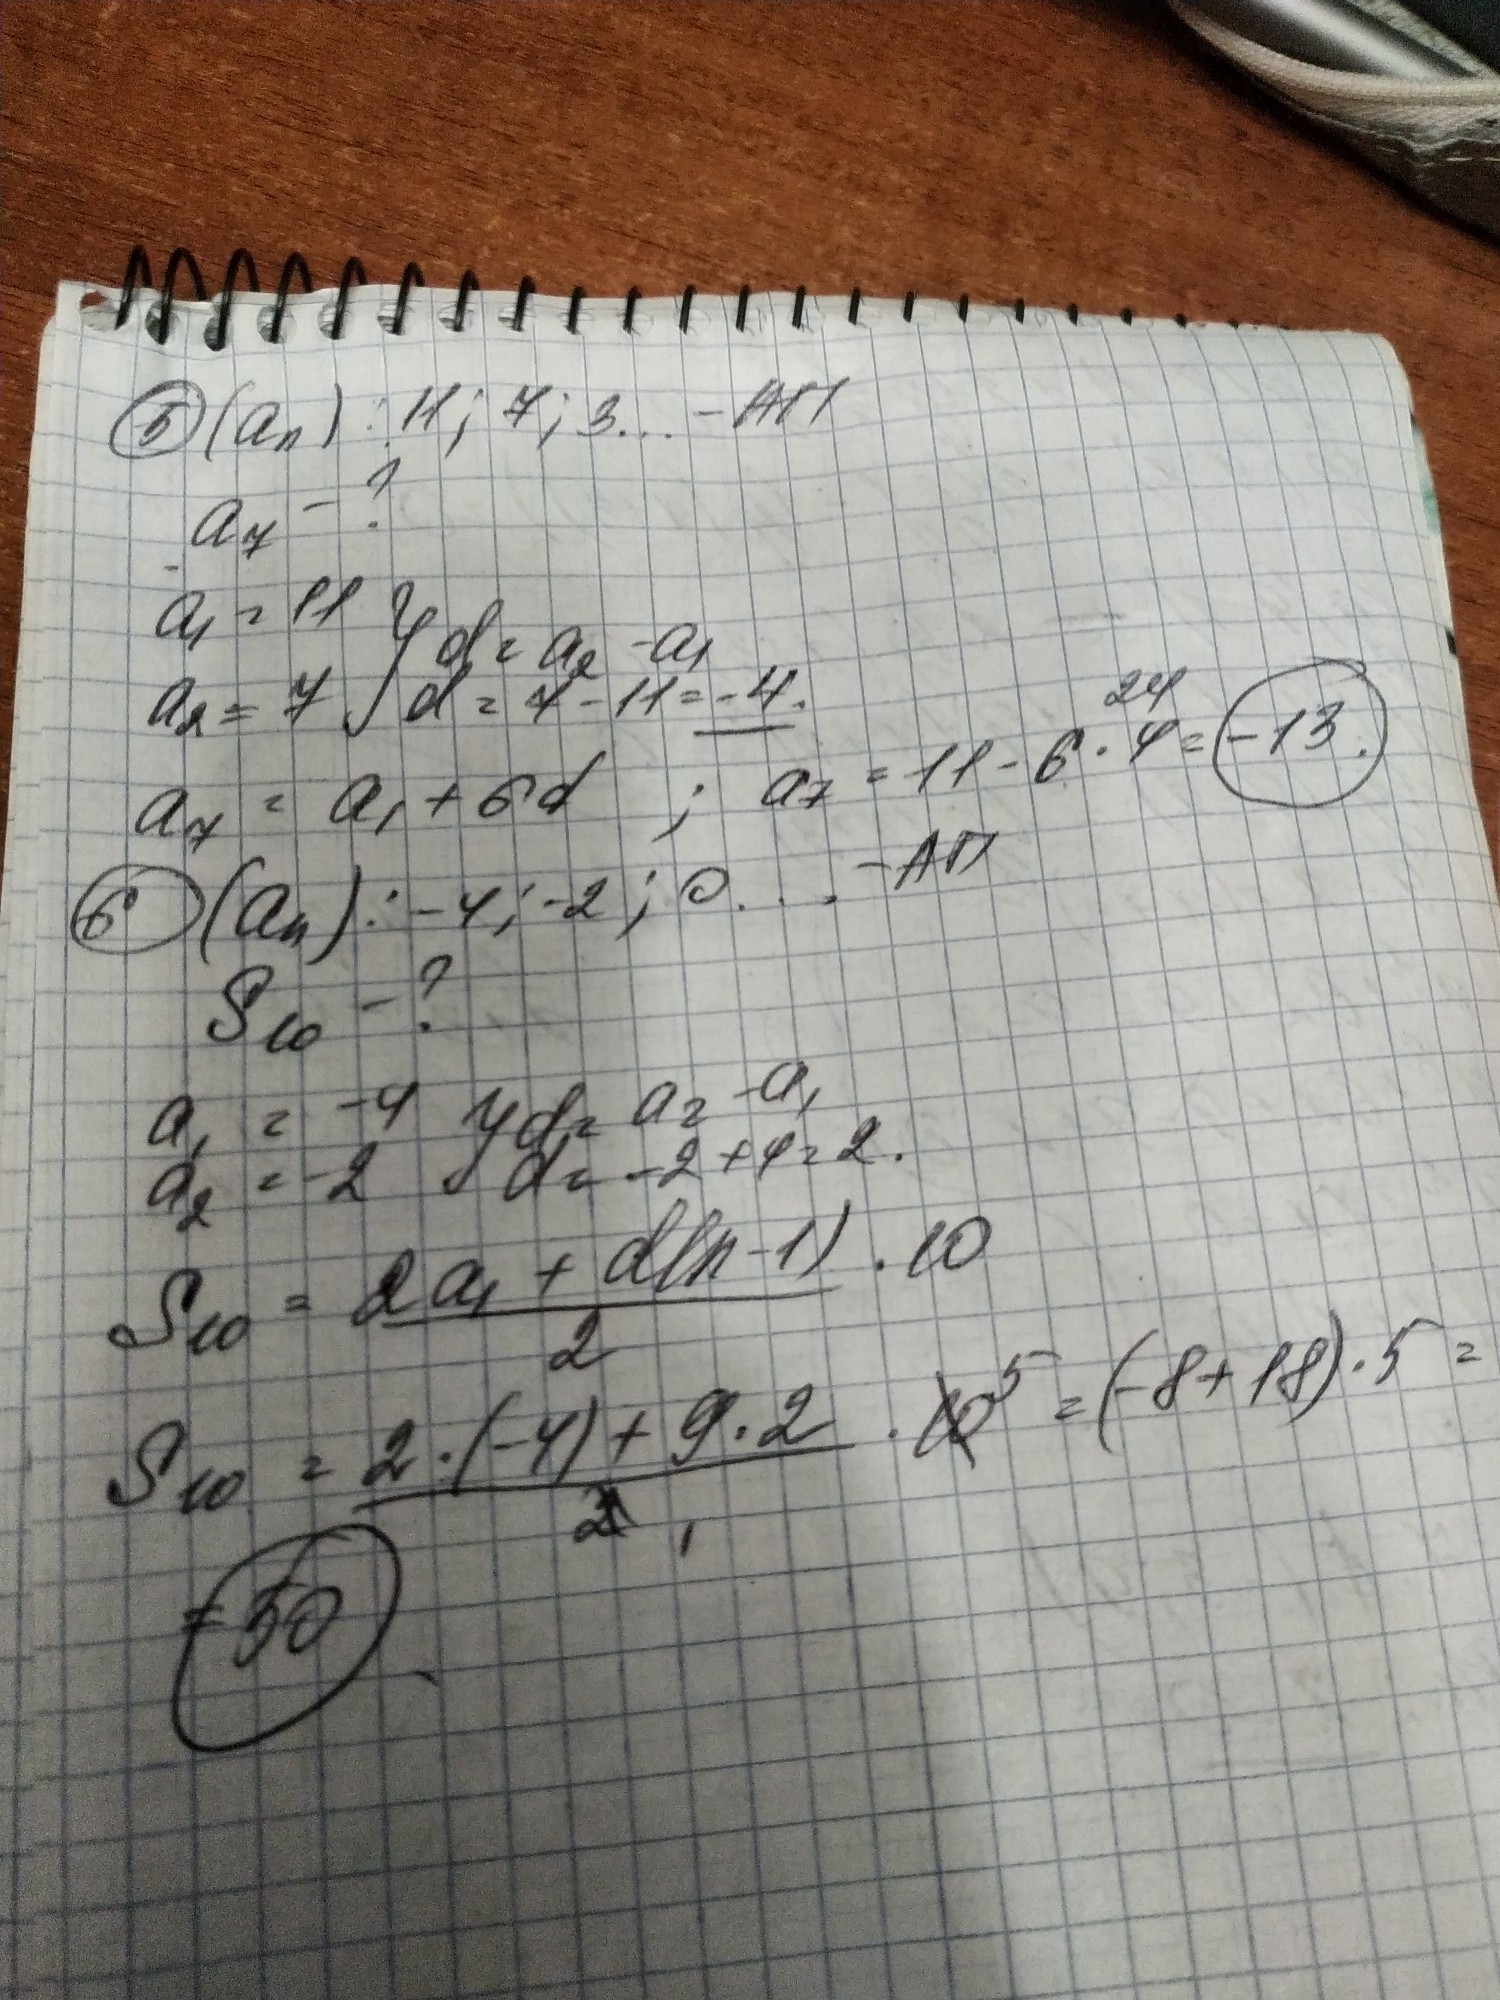 5 (aₙ) : 11; 7; 3... - АП
a₇ - ?
a₁ = 11 } d = a₂ - a₁
a₂ = 7 } d = 7 - 11 = -4.
a₇ = a₁ + 6d ; a₇ = 11 - 6 · 4 = -13.
24
6 (aₙ) : -4; -2; 0.... - АП
S₁₀ - ?
a₁ = -4 } d = a₂ - a₁
a₂ = -2 } d = -2 + 4 = 2.
S₁₀ = (2a₁ + d(n-1))/2 · 10
S₁₀ = (2 · (-4) + 9 · 2)/2 · 10 5 = (-8 + 18) · 5 =
= 50